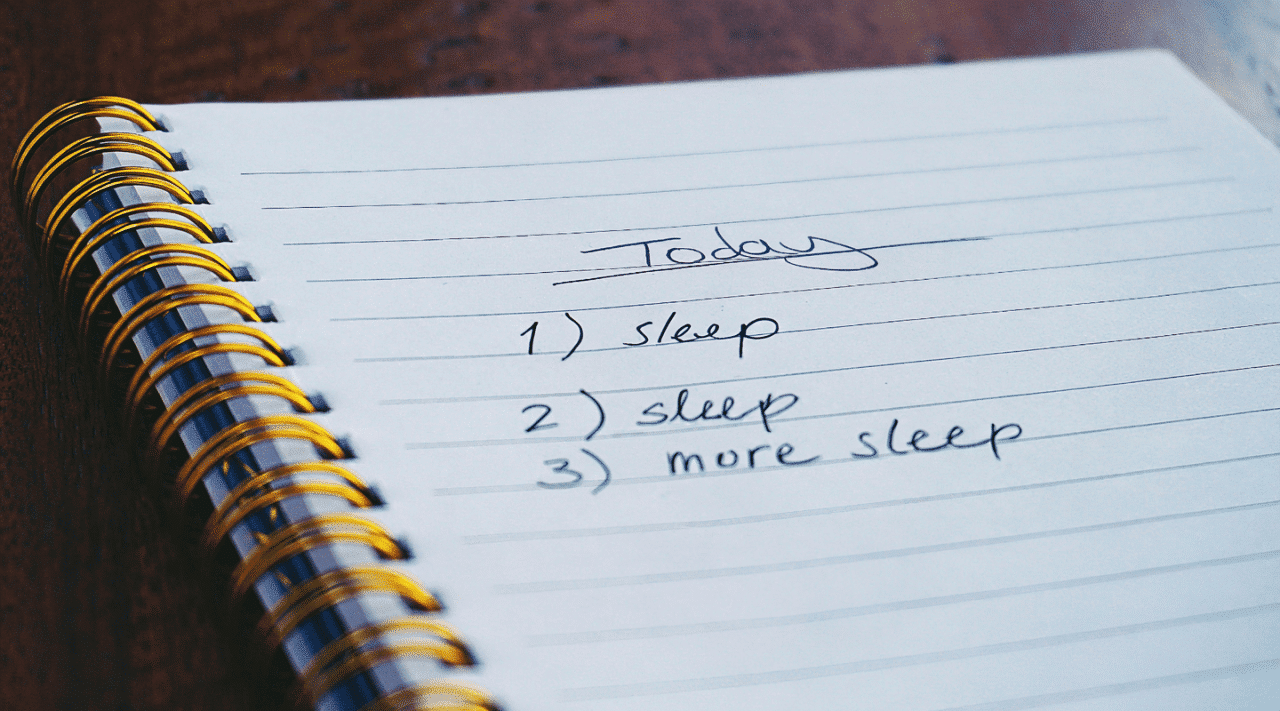 Today
1) sleep
2) sleep
3) more sleep